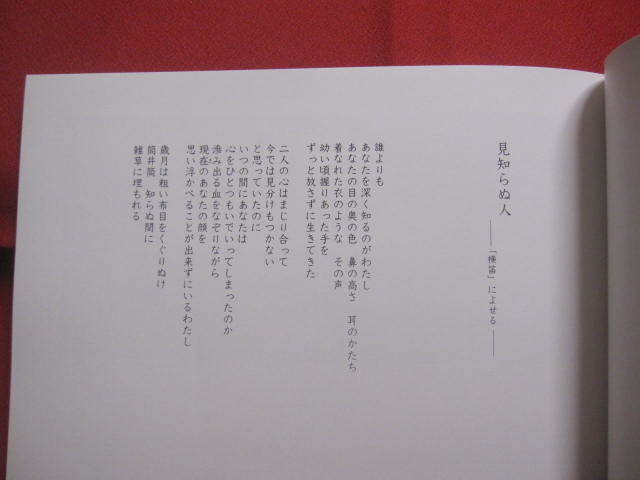 見知らぬ人
――「横笛」によせる――
誰よりも
あなたを深く知るのがわたし
あなたの目の奥の色　鼻の高さ　耳のかたち
着なれた衣のような　その声
幼い頃握りあった手を
ずっと放さずに生きてきた
二人の心はまじり合って
今では見分けもつかない
と思っていたのに
いつの間にあなたは
心をひとつもいでいってしまったのか
滲み出る血をなぞりながら
現在のあなたの顔を
思い浮かべることが出来ずにいるわたし
歳月は粗い布目をくぐりぬけ
筒井筒　知らぬ間に
雑草に埋もれる